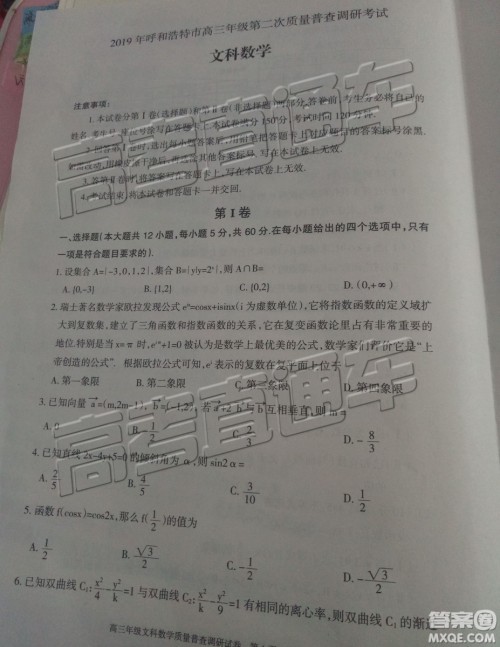 2019年呼和浩特市高三年级第二次质量普查调研考试
文科数学
注意事项:
1.本试卷分第Ⅰ卷(选择题)和第Ⅱ卷(非选择题)两部分,答卷前,考生务必将自己的
姓名、考生号、座位号涂写在答题卡上.本试卷满分150分,考试时间120分钟.
2.回答第Ⅰ卷时,选出每小题答案后,
3.答第Ⅱ卷时,
4.考试结束,将本试卷和答题卡一并交回.
第Ⅰ卷
一、选择题(本大题共12小题,每小题5分,共60分.在每小题给出的四个选项中,只有
一项是符合题目要求的).
1. 设集合A={-3,0,1,2},集合B={y|y=2ˣ},则A∩B=
A. {0,-3} B. {1,2} C. {0,1,2} D. (0,+∞)
2. 瑞士著名数学家欧拉发现公式eⁱˣ=cosx+isinx(i为虚数单位),它将指数函数的定义域扩
大到复数集,建立了三角函数和指数函数的关系,它在复变函数论里占有非常重要的
地位.特别是当x=π时,e^{iπ}+1=0被认为是数学上最优美的公式,数学家们评价它是“上
帝创造的公式”.根据欧拉公式可知,
表示的复数在复平面上位于
A. 第一象限 B. 第二象限 C. 第三象限 D. 第四象限
3. 已知向量a=(m,2m-1), b=(-1,2),若a+2b与b互相垂直,则m=
A. 0 B. -1/2 D. -8/3
4. 已知直线2x-4y+5=0的倾斜角为α,则sin2α=
A. 2/5 B. 4/5 C. 3/10 D. 1/2
5. 函数f(cosx)=cos2x,那么f(1/2)的值为
A. 1/2 B. √3/2 C. -1/2 D. -√3/2
6. 已知双曲线C₁: x²/4-y²/k=1与双曲线C₂: x²/k-y²/9=1有相同的离心率,则双曲线C₁的渐近
高三年级文科数学质量普查调研试卷
高考直通车
高考直通车
高考直通车
答案圈
MXQE.COM